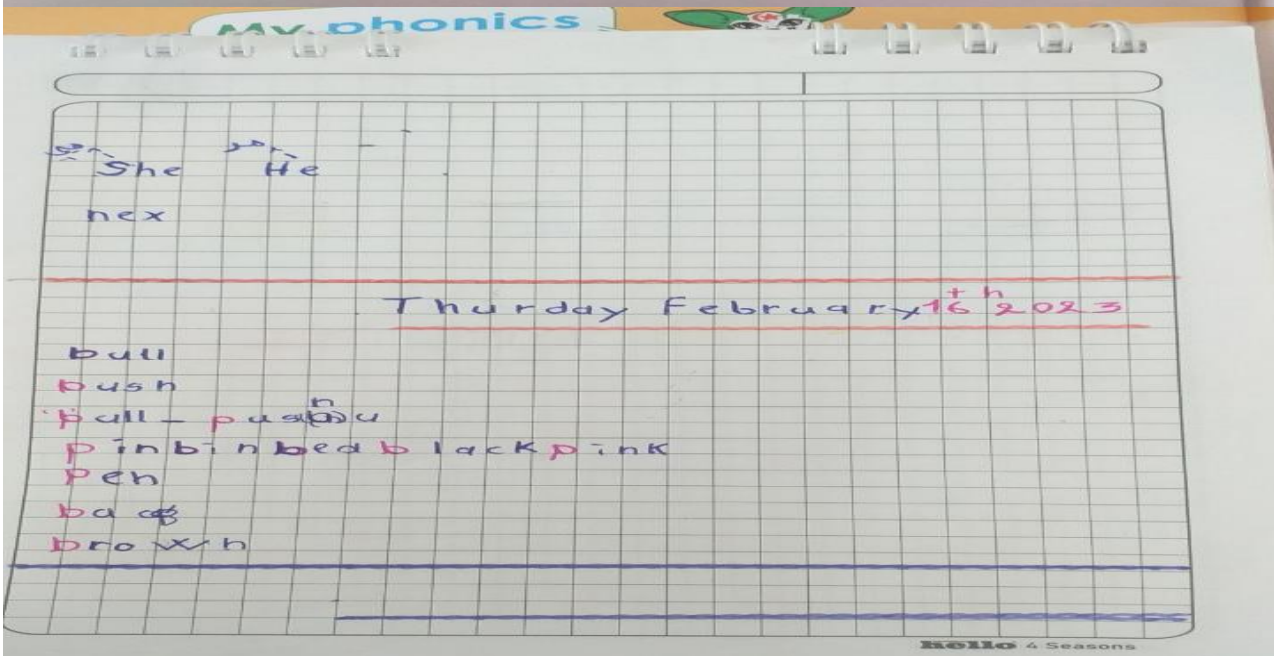 My phonics
She He
nex
Thurday February 16th 2023
bull
push
pull - pu
pin bin bed black pink
pen
bag
brown
hello 4 Seasons